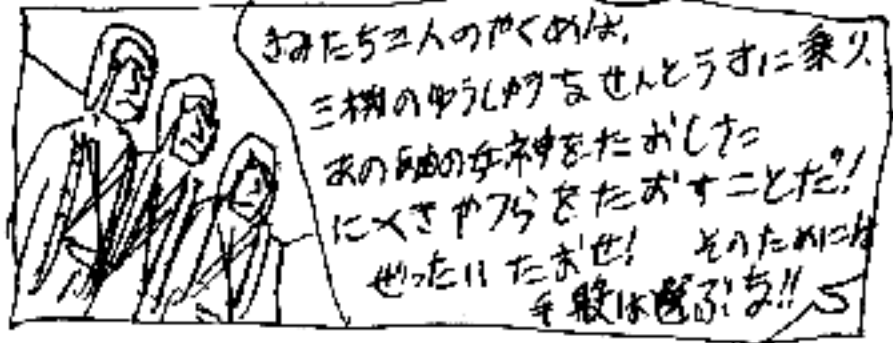 きみたち三人のやくめは、
三機のゆうしゅうなせんとうきに乗り、
あの の女神をたおした
にくきやつらをたおすことだ!
ぜったいたおせ! そのためには
手段は選ぶな!!